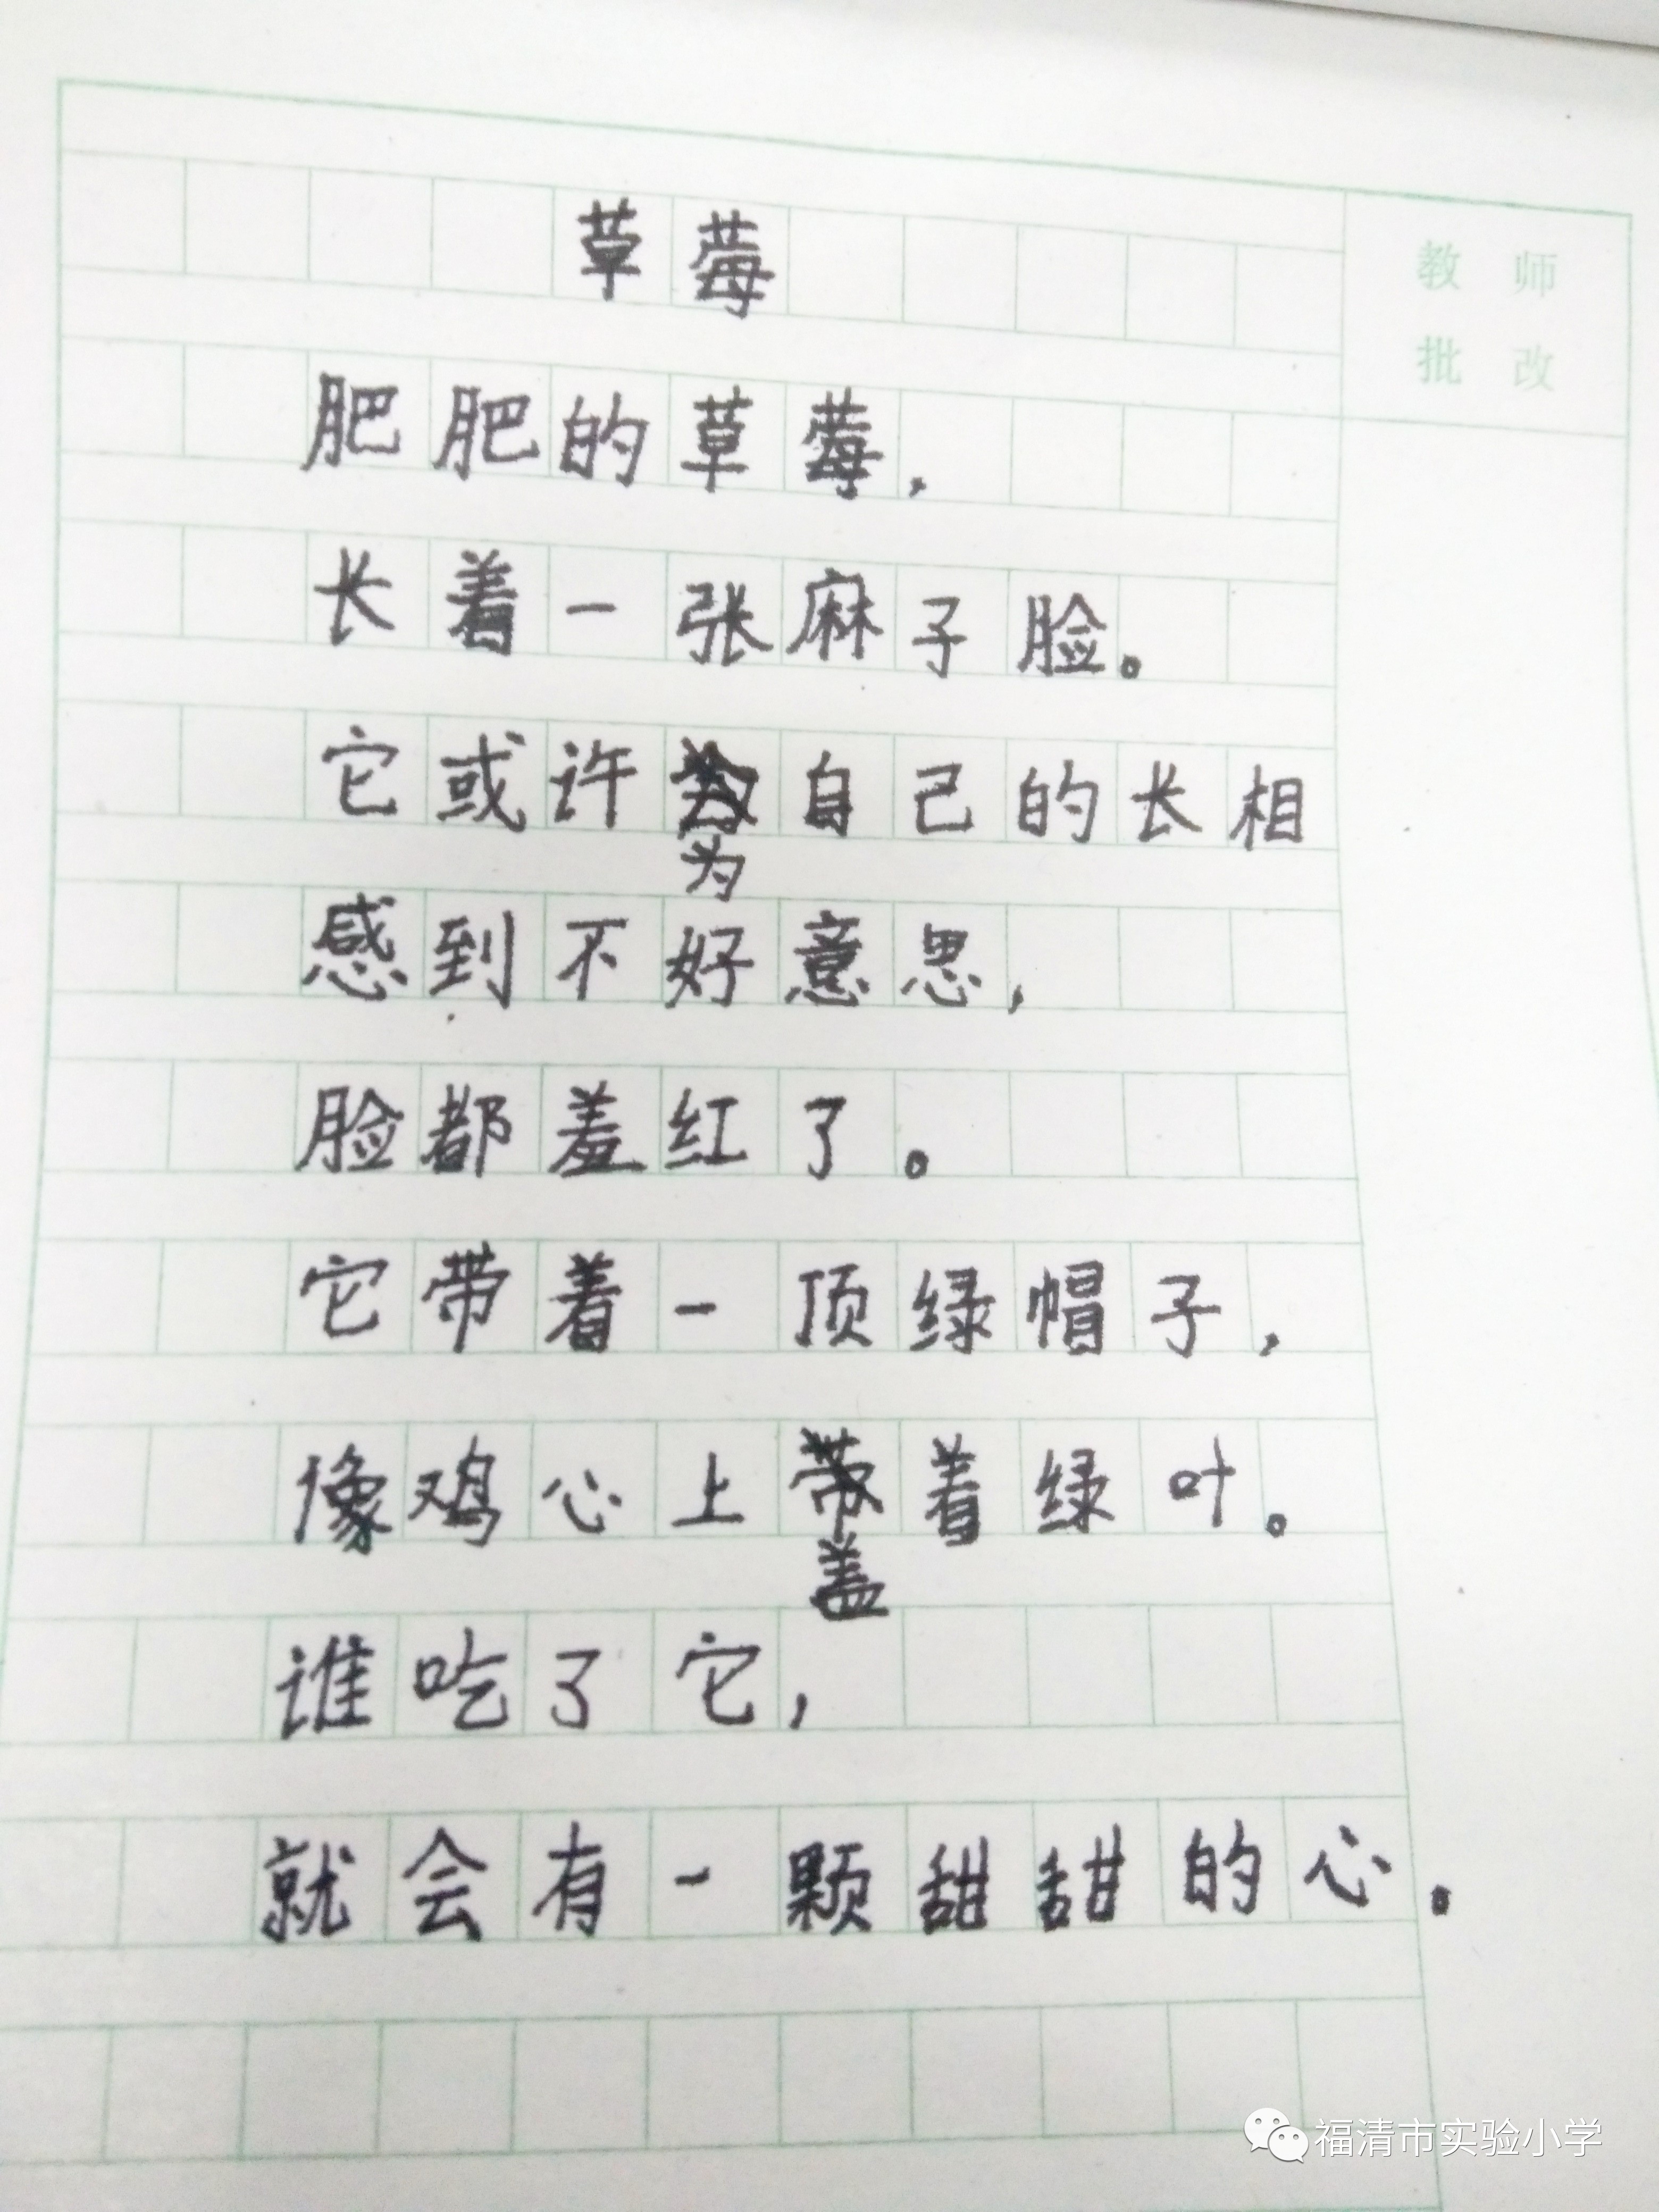 草莓
教师
批改
肥肥的草莓，
长着一张麻子脸。
它或许为自己的长相
感到不好意思，
脸都羞红了。
它带着一顶绿帽子，
像鸡心上盖着绿叶。
谁吃了它，
就会有一颗甜甜的心。
福清市实验小学